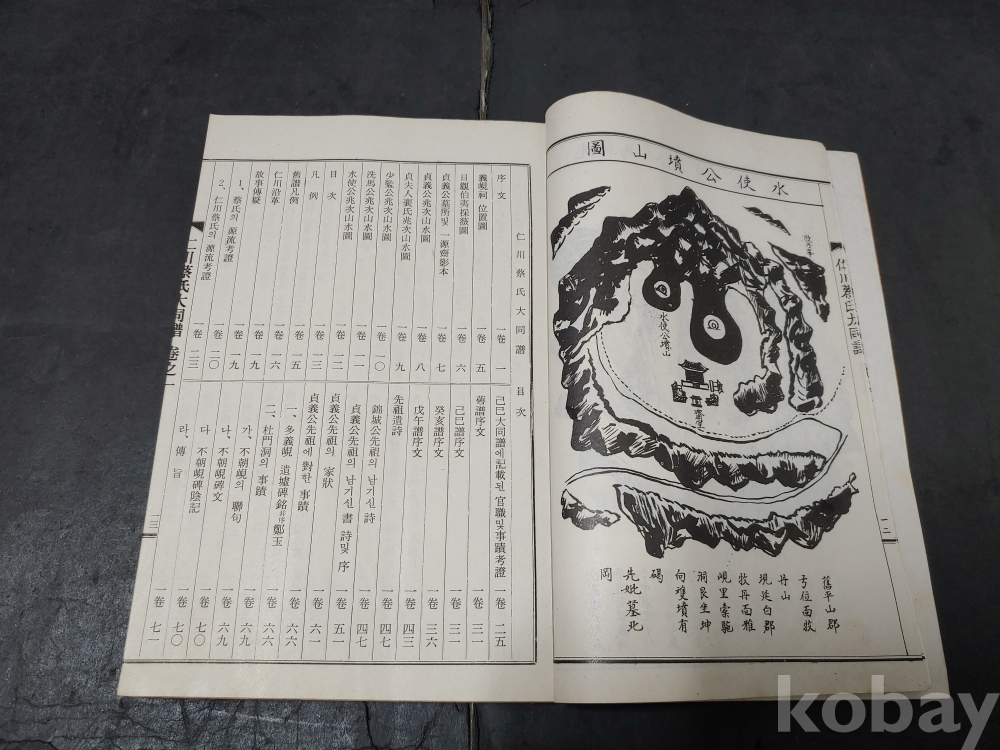 水使公墳山圖
特秀峯
水使公墳山
齋室
舊平山郡
丂位面牧
丹山
現延白郡
牧丹面雅
峴里索驼
洞艮坐坤
向雙墳有
碣
先妣墓北
岡
一二
仁川蔡氏大同譜
仁川蔡氏大同譜 目次
序文 一卷 一
義峴祠 位置圖 一卷 五
日觀伯夷採薇圖 一卷 六
貞義公墓所및 一源齋影本 一卷 七
貞義公兆次山水圖 一卷 八
貞夫人裵氏兆次山水圖 一卷 九
少監公兆次山水圖 一卷 一〇
洗馬公兆次山水圖 一卷 一一
水使公兆次山水圖 一卷 一二
目次 一卷 一三
凡例 一卷 一五
舊譜凡例 一卷 一六
仁川沿革 一卷 一九
故事傳疑 一卷 一九
1、蔡氏의 源流考證 一卷 二〇
2、仁川蔡氏의 源流考證 一卷 二三
己巳大同譜에 記載된 官職및 事蹟考證 一卷 二五
舊譜序文 一卷 三一
己巳譜序文 一卷 三一
癸亥譜序文 一卷 三六
戊午譜序文 一卷 四三
先祖遺詩 一卷 四七
錦城公先祖의 남기신 詩 一卷 四七
貞義公先祖의 남기신 書 詩및 序 一卷 五一
貞義公先祖의 家狀 一卷 六一
貞義公先祖에 對한 事蹟 一卷 六六
一、多義峴 遺墟碑銘 幷序 鄭玉 一卷 六六
二、杜門洞의 事蹟 一卷 六九
가、不朝峴의 聯句 一卷 六九
나、不朝峴碑文 一卷 七〇
다、不朝峴碑陰記 一卷 七〇
라、傳旨 一卷 七一
仁川蔡氏大同譜 卷之一
一三
kobay